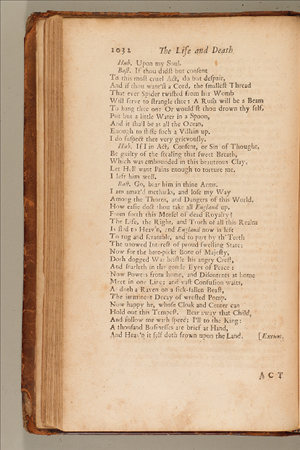 1032 The Life and Death
Hub. Upon my Soul.
Bast. If thou didst but consent
To this most cruel Act, do but despair,
And if thou want'st a Cord, the smallest Thread
That ever Spider twisted from her Womb
Will serve to strangle thee: A Rush will be a Beam
To hang thee on: Or would'st thou drown thy self,
Put but a little Water in a Spoon,
And it shall be as all the Ocean,
Enough to stifle such a Villain up.
I do suspect thee very grievously.
Hub. If I in Act, Consent, or Sin of Thought,
Be guilty of the stealing that sweet Breath,
Which was embounded in this beauteous Clay,
Let Hell want Pains enough to torture me.
I left him well.
Bast. Go, bear him in thine Arms.
I am amaz'd methinks, and lose my Way
Among the Thorns, and Dangers of this World.
How easie dost thou take all England up,
From forth this Morsel of dead Royalty!
The Life, the Right, and Truth of all this Realm
Is fled to Heav'n, and England now is left
To tug and scramble, and to part by th' Teeth
The unowed Interest of proud swelling State:
Now for the bare-pickt Bone of Majesty,
Doth dogged War bristle his angry Crest,
And snarleth in the gentle Eyes of Peace:
Now Powers from home, and Discontents at home
Meet in one Line: and vast Confusion waits,
As doth a Raven on a sick-fallen Beast,
The imminent Decay of wrested Pomp.
Now happy he, whose Cloak and Center can
Hold out this Tempest. Bear away that Child,
And follow me with speed; I'll to the King:
A thousand Businesses are brief at Hand,
And Heav'n it self doth frown upon the Land. [Exeunt.
ACT